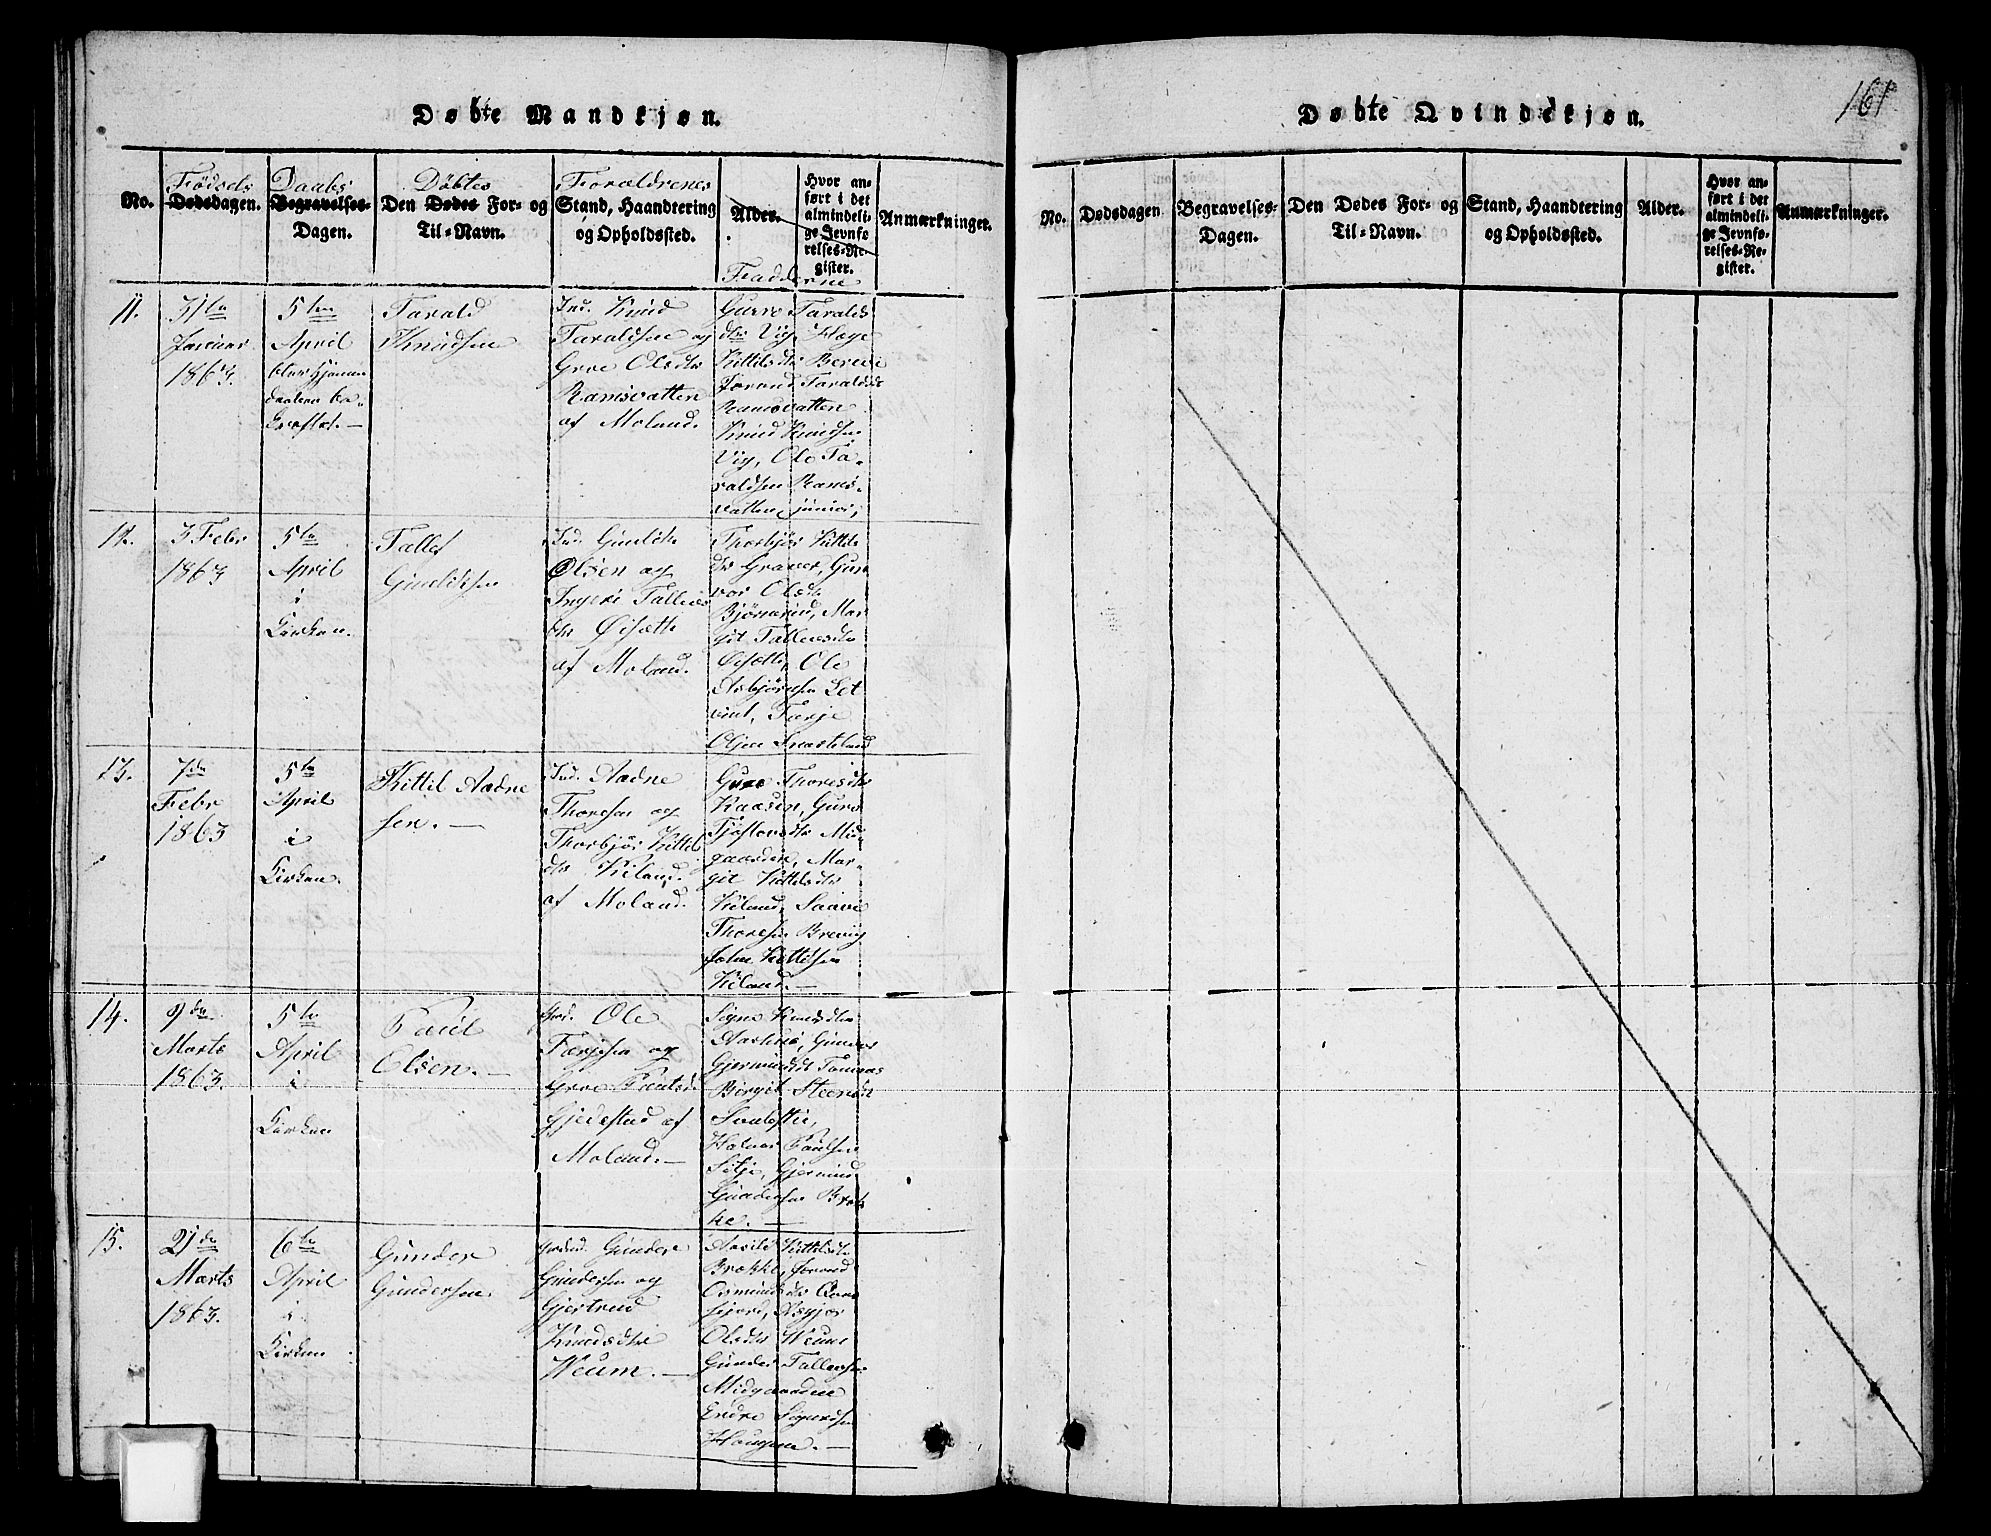 Døbte Mandkjøn.
No.
Fødsels
Dødsdagen.
Daabs
Begravelses-
Dagen.
Døbtes
Den Dødes For- og
Til-Navn.
Forældrenes
Stand, Haandtering
og Opholdssted.
Alder.
Hvor an-
ført i det
almindeli-
ge Jevnfø-
relses-Re-
gister.
Fadderne
Anmærkninger.
11.
31te
Januar
1863.
5te
April
blev hjemme
daaben be-
kræftet.
Tarald
Knudsen
Ind. Knud
Taraldsen og
Groe Olsdtr
Ramsvatten
af Moland.
Gurro Taralds
dtr Vig, Hæge
Kittilsdtr
Jorand Taraldsdtr
Ramsvatten
Knud Knudsen
Vig, Ole Ta-
raldsen Rams-
vatten junior,
12.
3 Febr
1863
5te
April
i
Kirken.
Tallef
Gunliksen
Ind. Gunlik
Olsen og
Ingeri Tallevs
dtr Øisætt
af Moland.
Thorbjør Kittils
dtr Graver, Gun
vor Olsdtr
Mar
git Tallevsdtr
Øisætt, Ole
Asbjørnsen
Tarje
Olsen
13.
7de
Febr
1863
5te
April
i
Kirken.
Kittil Aadne
sen.
Ind. Aadne
Thoresen og
Thorbjør Kittils
dtr Kiland
af Moland.
Guro Thoresdtr
Kaasen, Guro
Tjøstovsdtr Mid-
gaarden, Mar-
git Kittilsdtr
Kiland, Saavi
Thoresen Brevig
John Kittilsen
Kiland.
14.
9de
Marts
1863.
5te
April
i
Kirken
Paul
Olsen.
Ole
Tarjesen og
Groe Paulsd.
Gjedestad af
Moland.
Signe Knudsdtr
Gunder
Gjermundsdtr
Birgit Steensdtr
Halvor Paulsen
Gjermund
Gundersen Brok
ke.
15.
21de
Marts
1863.
6te
April
i
Kirken
Gunder
Gundersen
Gundere
Gundersen og
Gjertrud
Knudsdtr
Weum.
Aasild Kittilsdtr
Brokke, Jorand
Osmundsdtr
Asgjer
Olsdtr Weum
Gunder Tallevsen
Midgaarden
Endre Sigurdsen
Haugene.
161
Døbte Qvindekjøn.
No.
Dødsdagen
Begravelses-
Dagen.
Den Dødes For- og
Til-Navn.
Stand, Haandtering
og Opholdssted.
Alder.
Hvor an-
ført i det
almindeli-
ge Jevnfø-
relses-Re-
gister.
Anmærkninger.